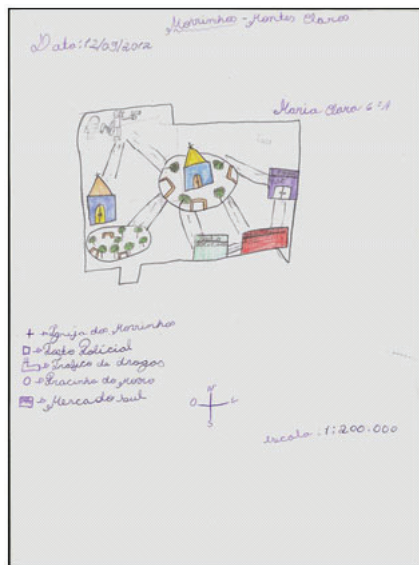 Morrinhos - Montes Claros
Data: 12/09/2012
Maria Clara 6º A
+ → Igreja dos Morrinhos
□ → Posto Policial
→ Trafico de drogas
O → Pracinha do Morro
→ Mercado sul
N
O L
S
escala: 1:200.000